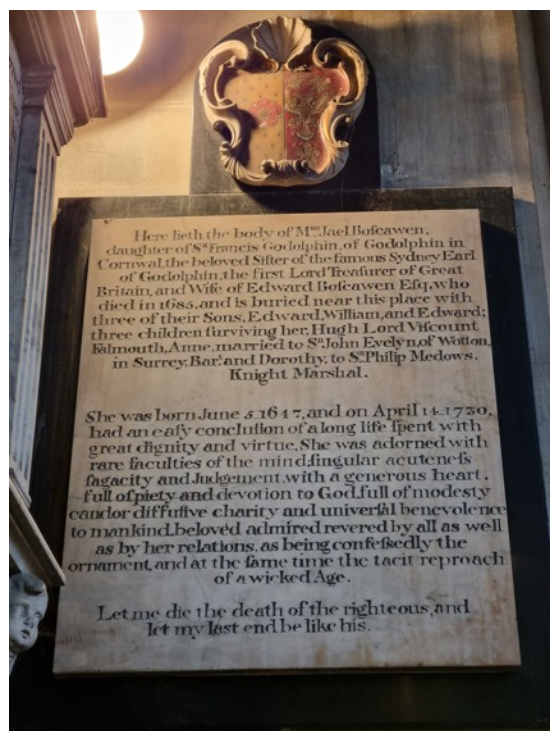 Here lieth the body of Mrs. Jael Boſcawen,
daughter of Sr. Francis Godolphin, of Godolphin in
Cornwal, the beloved Siſter of the famous Sydney Earl
of Godolphin, the first Lord Treaſurer of Great
Britain, and Wife of Edward Boſcawen Eſq, who
died in 1685, and is buried near this place with
three of their Sons, Edward, William, and Edward;
three children ſurviving her, Hugh Lord Viſcount
Falmouth, Anne, married to Sr. John Evelyn, of Wotton,
in Surrey, Bart. and Dorothy, to Sr. Philip Medows.
Knight Marshal.
She was born June 5. 1647, and on April 14. 1730,
had an eaſy concluſion of a long life ſpent with
great dignity and virtue, She was adorned with
rare faculties of the mind, ſingular acuteneſs
ſagacity and Judgement, with a generous heart,
full of piety and devotion to God, full of modesty
candor diffuſive charity and univerſal benevolence
to mankind, belov'd admired revered by all as well
as by her relations, as being confeſsedly the
ornament, and at the ſame time the tacit reproach
of a wicked Age.
Let me die the death of the righteous, and
let my last end be like his.